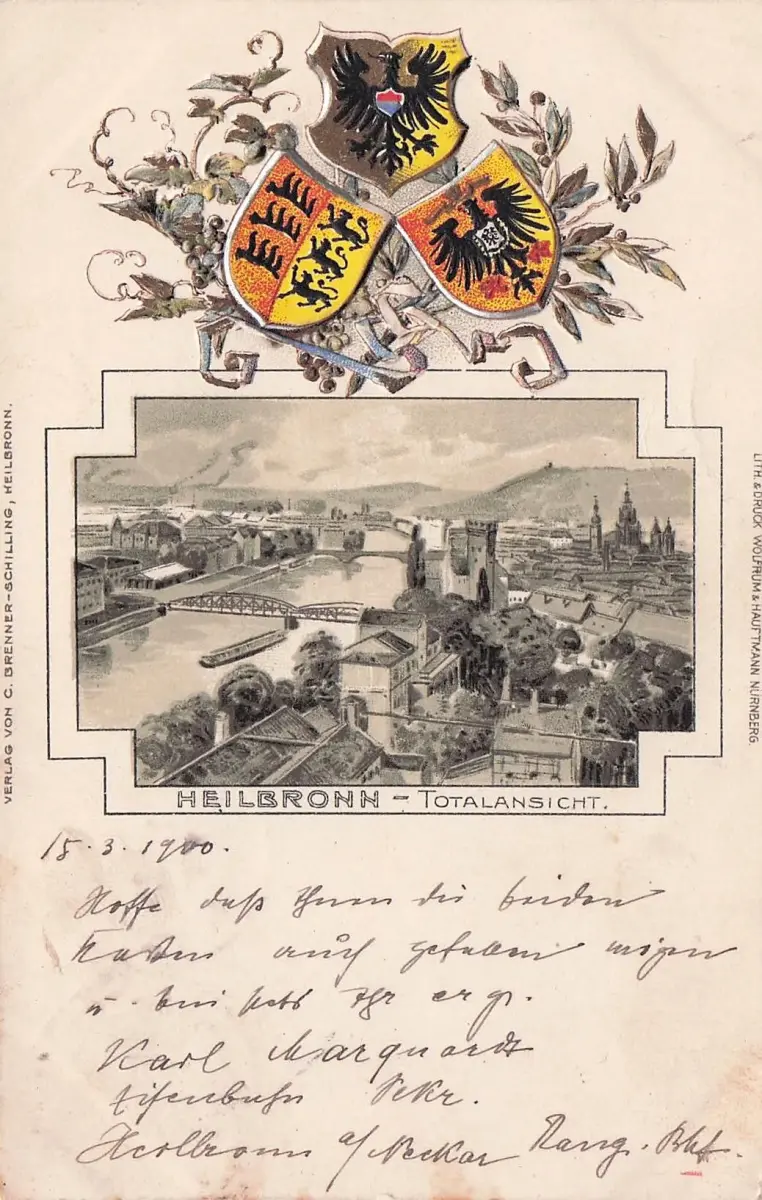 VERLAG VON C. BRENNER-SCHILLING, HEILBRONN.
LITH. & DRUCK WOLFRUM & HAUPTMANN NÜRNBERG.
HEILBRONN – TOTALANSICHT.
15.3.1900.
Hoffe daß Ihnen die beiden
Karten auch gefallen mögen
u. bin stets Ihr erg.
Karl Marquardt
Eisenbahn Sekr.
Heilbronn a/Neckar Rang. Bhf.